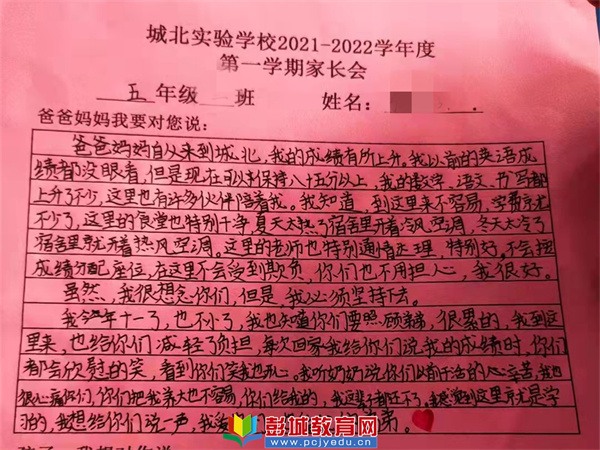 城北实验学校2021-2022学年度
第一学期家长会
五年级 班 姓名:
爸爸妈妈我要对您说:
爸爸妈妈自从来到城北,我的成绩有所上升。我以前的英语成
绩都没眼看,但是现在可以保持八十五分以上,我的数字、语文、书写都
上升了不少,这里也有许多伙伴陪着我。我知道,到这里来不容易,学费就花
不少了,这里的食堂也特别干净,夏天太热了宿舍里开着冷风空调,冬天太冷了
宿舍里就开着热风空调。这里的老师也特别通情达理,特别好。不会按
成绩分配座位,在这里不会受到欺负,你们也不用担心,我很好。
虽然,我很想念你们,但是我必须坚持下去。
我今年十一了,也不小了,我也知道你们要照顾弟弟,很累的,我到这
里来,也给你们减轻了负担,每次回家我给你们说我的成绩时,你们
都会欣慰的笑,看到你们笑我也开心。我听奶奶说你们以前干活的心辛苦,我也
很心疼你们,你们把我养大也不容易,你们给我的,我这辈子都还不了,我感觉到这里就是学
习的,我想给你们说一声,我爱 弟。
彭城教育网
www.pcjyedu.cn